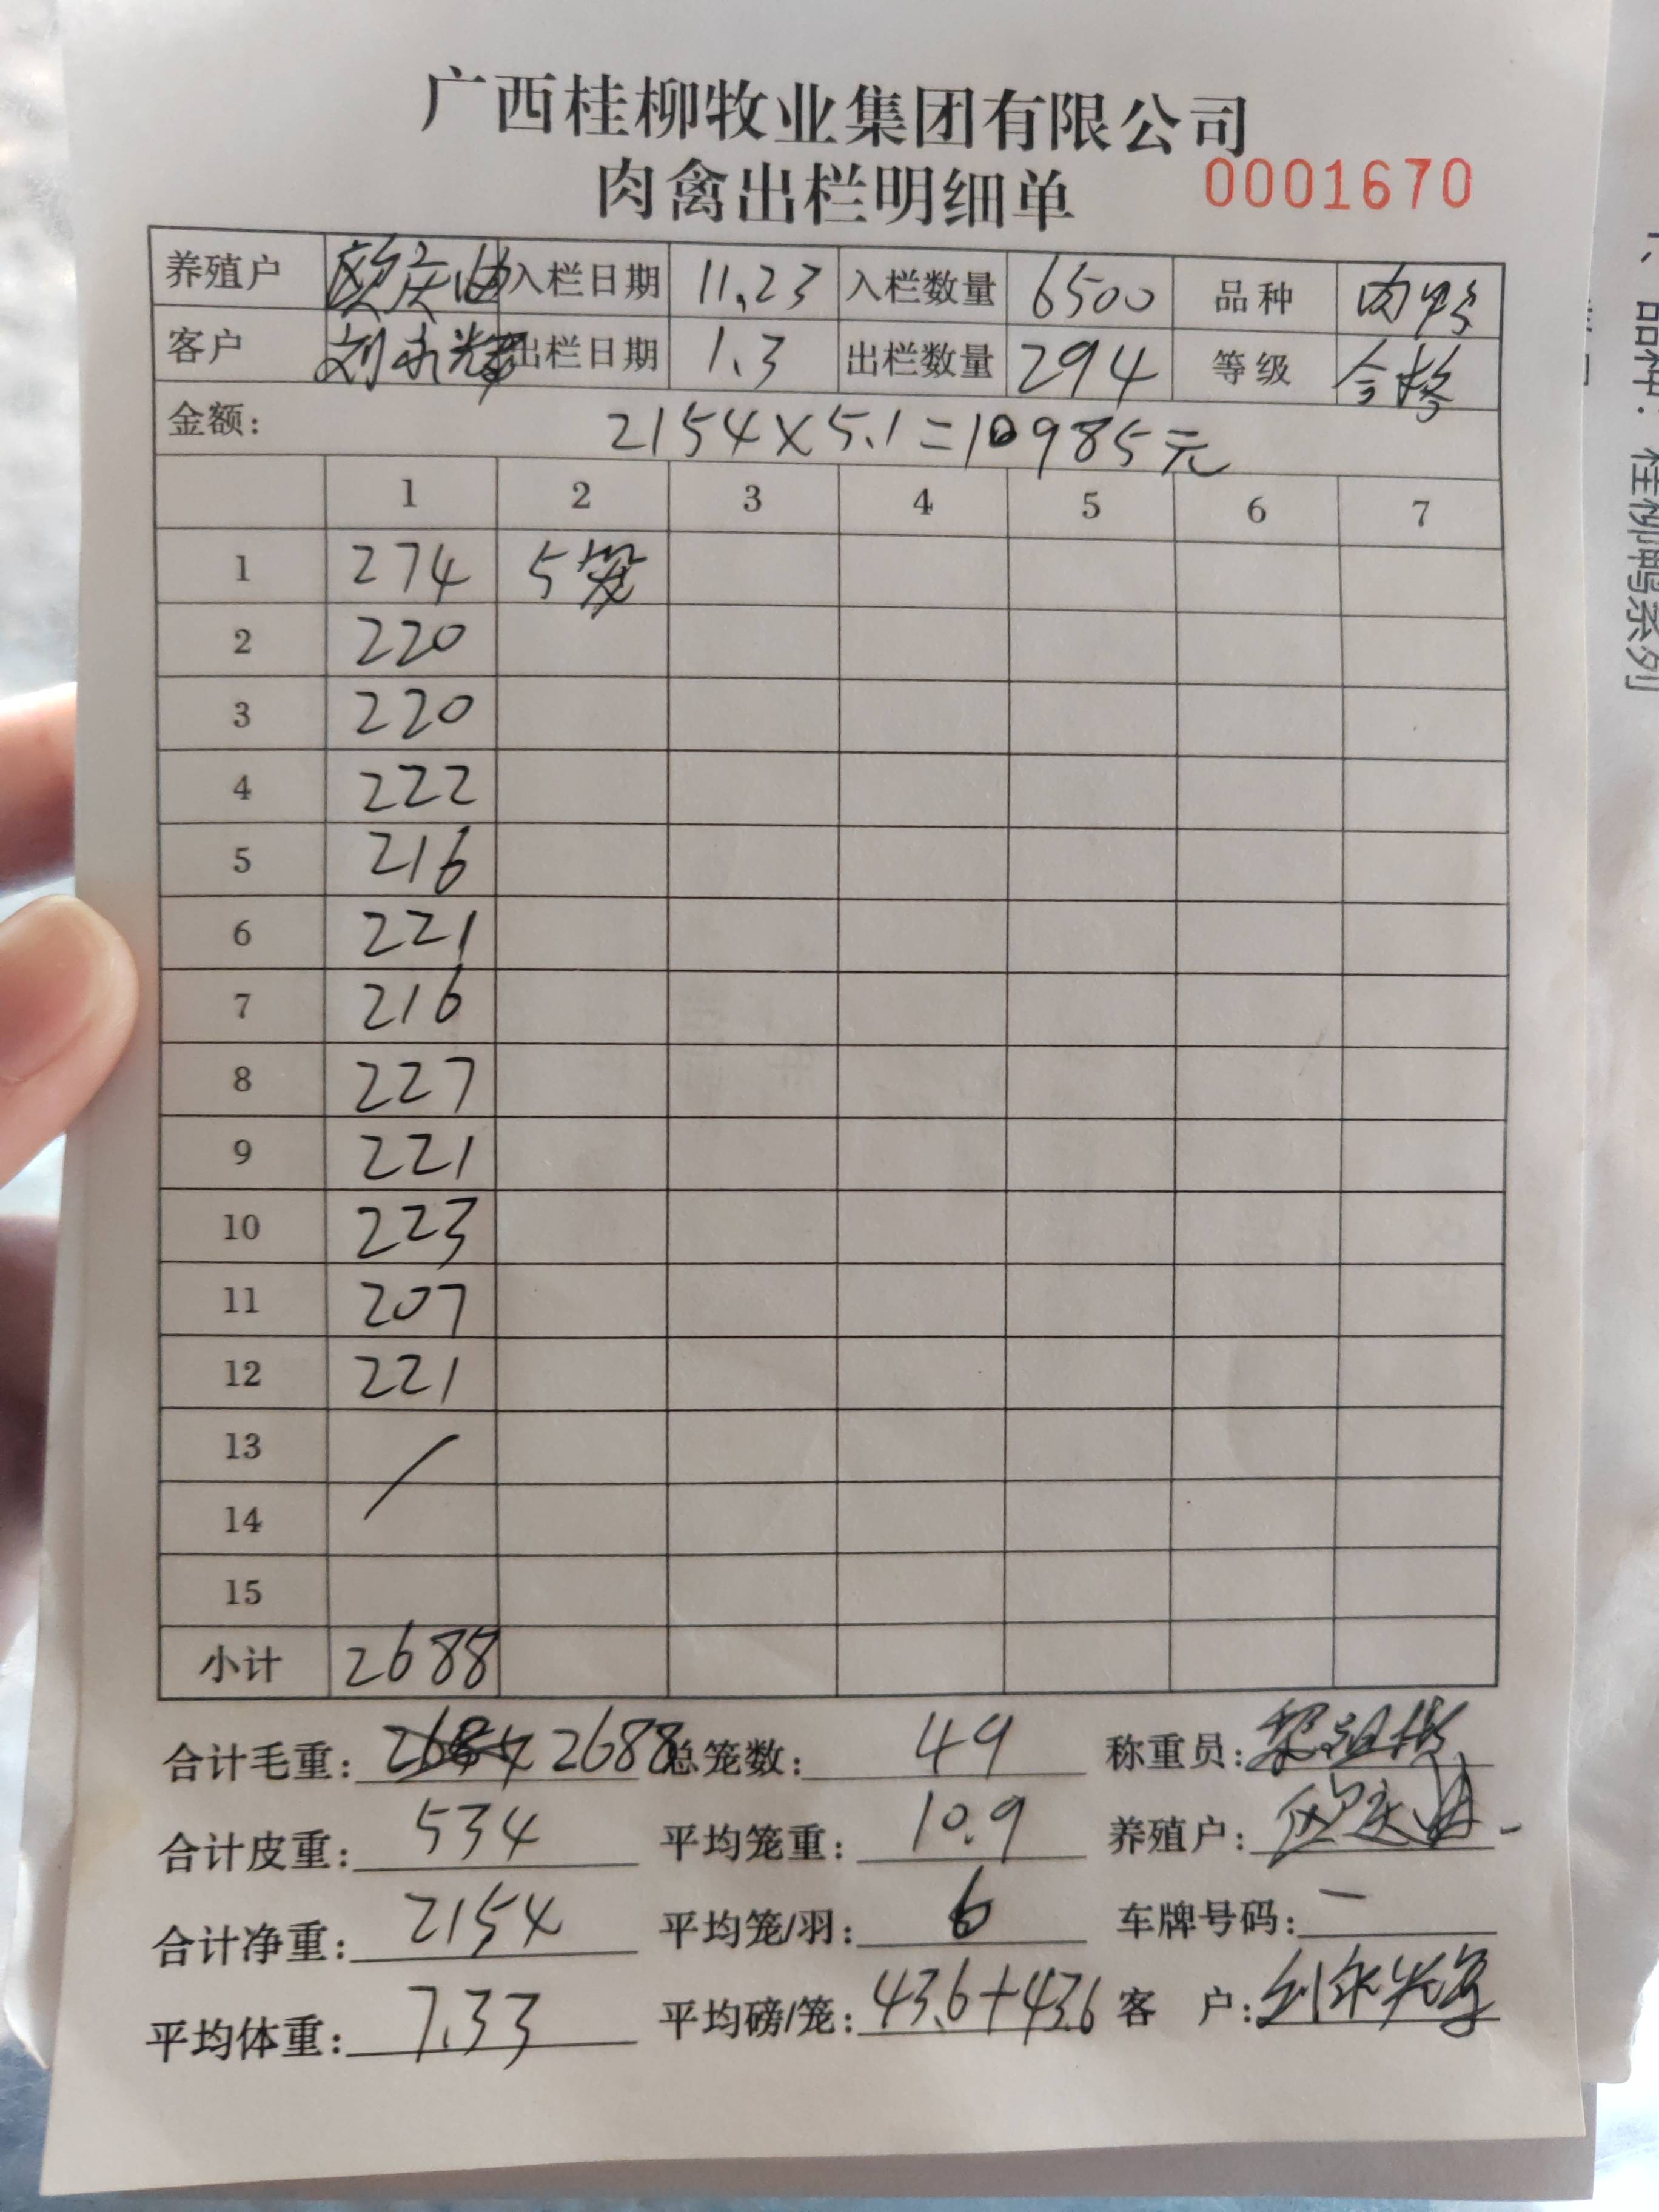 广西桂柳牧业集团有限公司
肉禽出栏明细单 0001670
养殖户 入栏日期 11.23 入栏数量 6500 品种 肉鸭
客户 刘永辉 出栏日期 1.3 出栏数量 294 等级 合格
金额： 2154×5.1=10985元
1 2 3 4 5 6 7
1 274 5笼
2 220
3 220
4 222
5 216
6 221
7 216
8 227
9 221
10 223
11 207
12 221
13 /
14
15
小计 2688
合计毛重： 2688 总笼数： 49 称重员：
合计皮重： 534 平均笼重： 10.9 养殖户：
合计净重： 2154 平均笼/羽： 6 车牌号码： —
平均体重： 7.33 平均磅/笼： 43.6+43.6 客 户： 刘永辉
品种：桂柳鸭系列